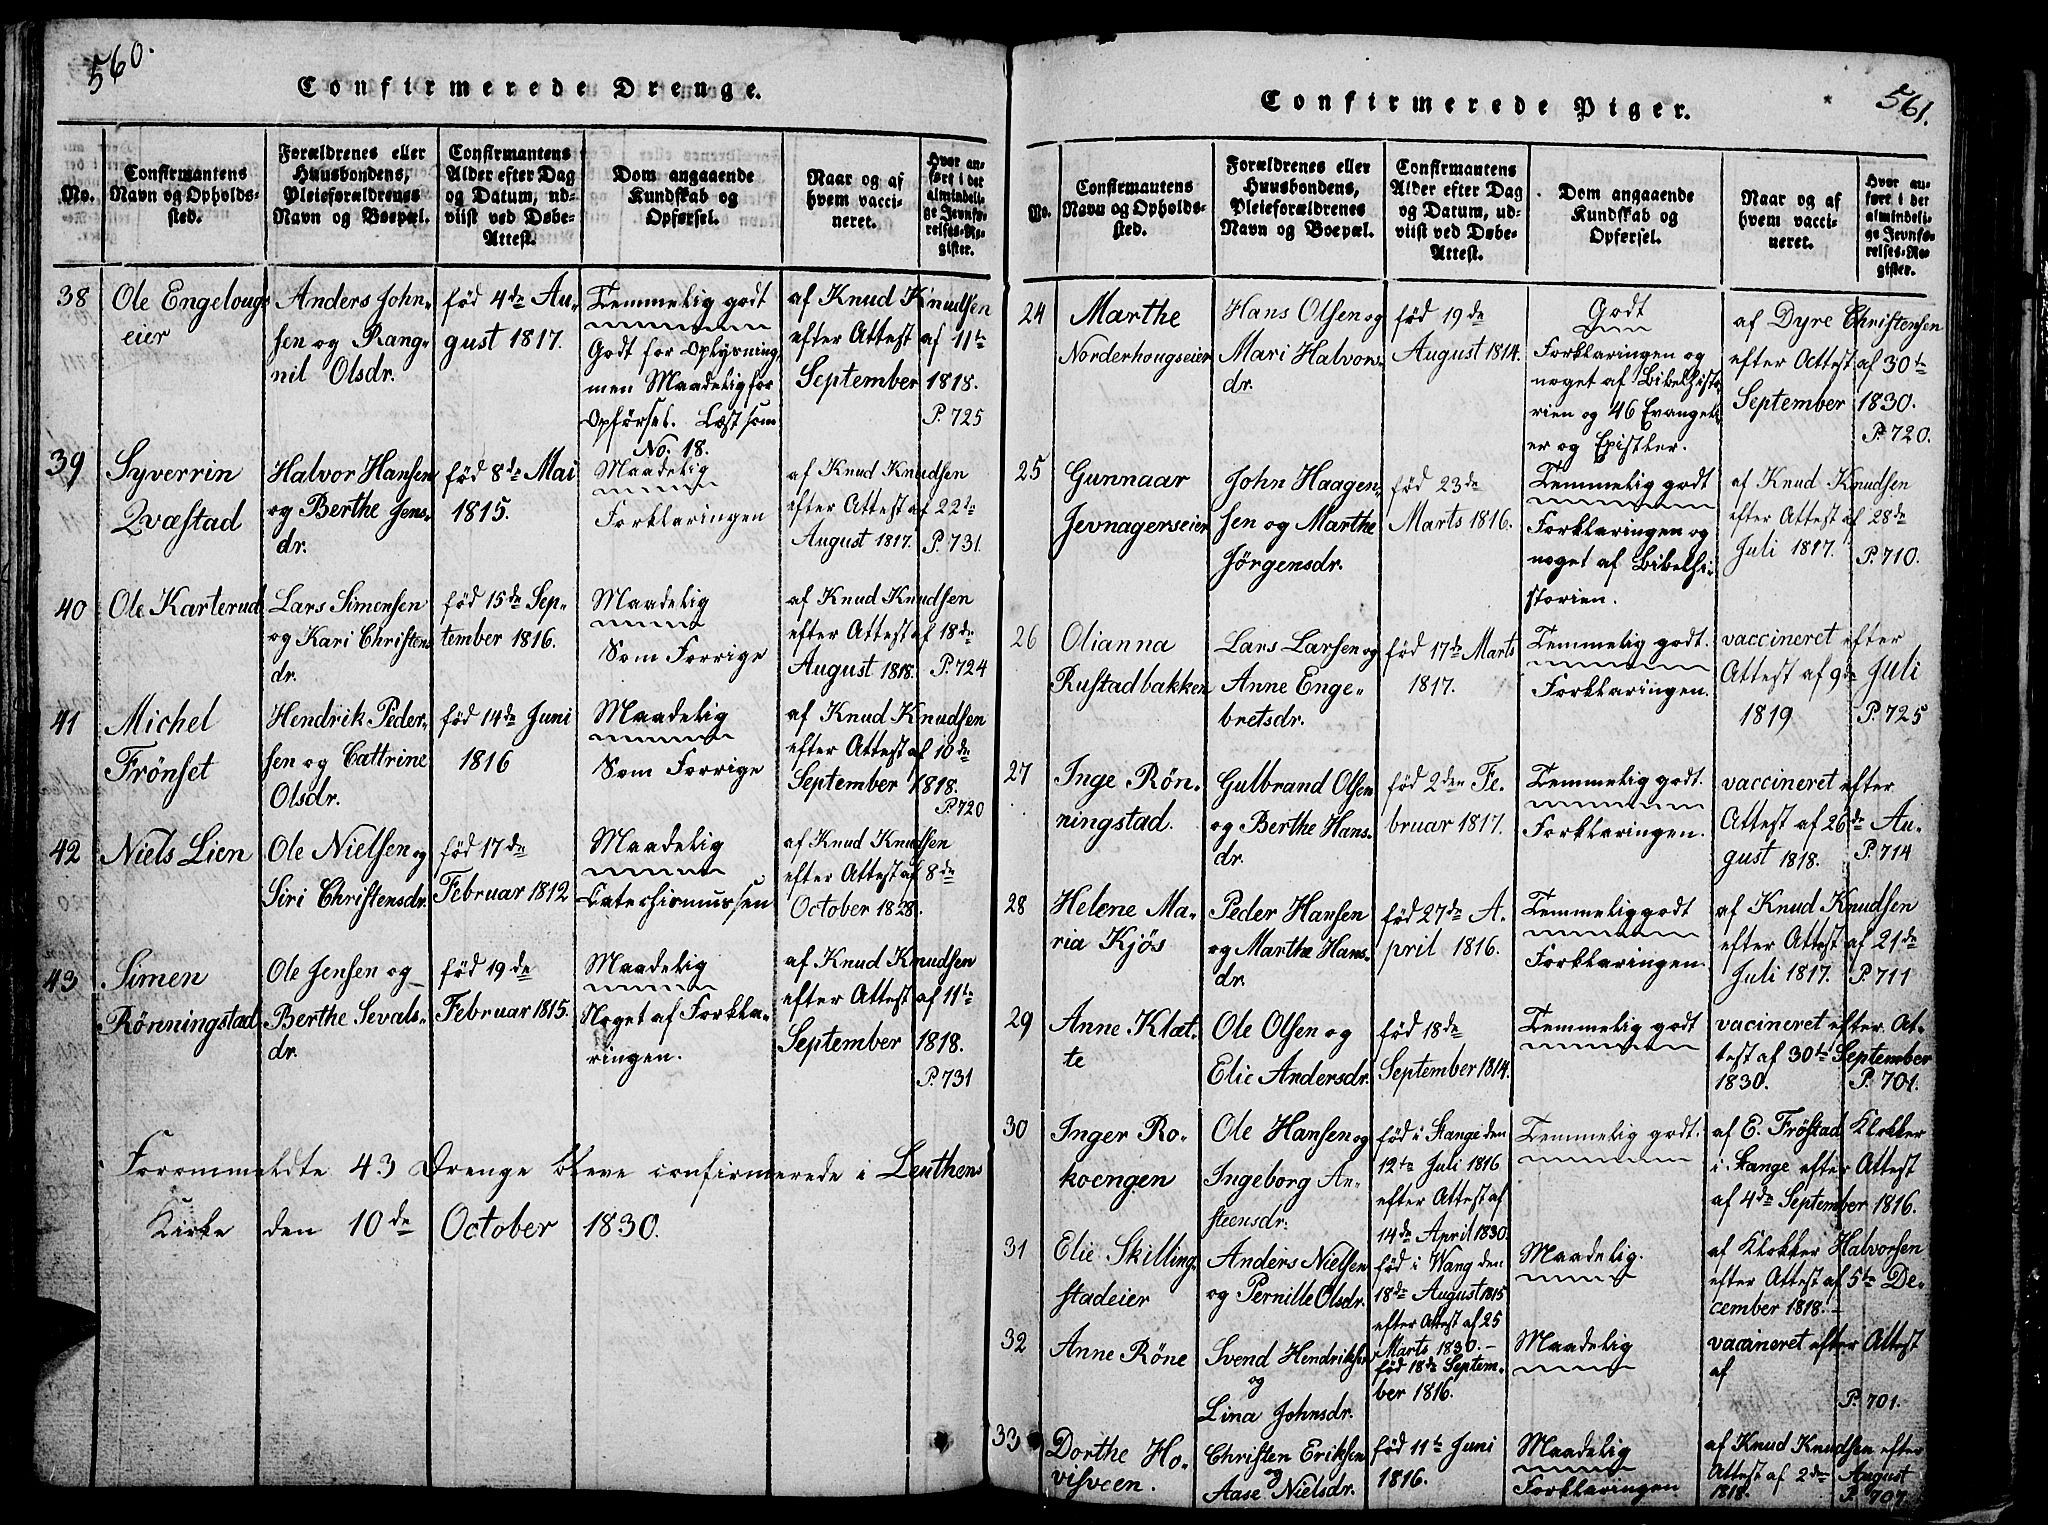 560.
Confirmerede Drenge.
No.
Confirmantens
Navn og Opholds-
sted.
Forældrenes eller
Huusbondens,
Pleieforældrenes
Navn og Boepæl.
Confirmantens
Alder efter Dag
og Datum, ud-
viist ved Døbe-
Attest.
Dom angaaende
Kundskab og
Opførsel.
Naar og af
hvem vacci-
neret.
Hvor an-
ført i det
almindeli-
ge Jevnfø-
relses-Re-
gister.
38
Ole Engelougs
eier
Anders John-
sen og Rang-
nil Olsdr.
fød 4de Au-
gust 1817.
Temmelig godt
Godt for Oplysning
men Maadelig for
Opførsel. Læst som
No. 18.
af Knud Knudsen
efter Attest af 11te
September 1818.
P. 725
39
Syverrin
Qvæstad
Halvor Hansen
og Berthe Jens-
dr.
fød 8de Mai
1815.
Maadelig
Forklaringen
af Knud Knudsen
efter Attest af 22de
August 1817. P. 731.
40
Ole Karterud
Lars Simensen
og Kari Christens
dr.
fød 15de Sep-
tember 1816.
Maadelig
Som Forrige
af Knud Knudsen
efter Attest af 18de
August 1818. P. 724
41
Michel
Frönset
Hendrik Peder-
sen og Cattrine
Olsdr.
fød 14de Juni
1816
Maadelig
Som Forrige
af Knud Knudsen
efter Attest af 10de
September 1818.
P. 720
42
Niels Lien
Ole Nielsen og
Siri Christensdr.
fød 17de
Februar 1812
Maadelig
Catechismussen
af Knud Knudsen
efter Attest af 8de
October 1828.
43
Simen
Rönningstad
Ole Jensen og
Berthe Sevals-
dr.
fød 19de
Februar 1815.
Maadelig
Noget af Forkla-
ringen.
af Knud Knudsen
efter Attest af 11te
September 1818.
P. 731
Forommeldte 43 Drenge bleve confirmerede i Leuthens
Kirke den 10de October 1830.
561.
Confirmerede Piger.
No.
Confirmantens
Navn og Opholds-
sted.
Forældrenes eller
Huusbondens,
Pleieforældrenes
Navn og Boepæl.
Confirmantens
Alder efter Dag
og Datum, ud-
viist ved Døbe-
Attest.
Dom angaaende
Kundskab og
Opførsel.
Naar og af
hvem vacci-
neret.
Hvor an-
ført i det
almindeli-
ge Jevnfø-
relses-Re-
gister.
24
Marthe
Norderhougseier
Hans Olsen og
Mari Halvors
dr.
fød 19de
August 1814.
Godt
Forklaringen og
noget af Bibelhisto-
rien og 46 Evangeli-
er og Epistler.
af Dyre Christensen
efter Attest af 30te
September 1830.
P. 720.
25
Gunnaar
Jevnagerseier
John Haagen-
sen og Marthe
Jörgensdr.
fød 23de
Marts 1816.
Temmelig godt
Forklaringen og
noget af Bibelhi-
storien.
af Knud Knudsen
efter Attest af 28de
Juli 1817. P. 710.
26
Olianna
Rustadbakken
Lars Larsen og
Anne Enge-
bretsdr.
fød 17de Marts
1817.
Temmelig godt.
Forklaringen.
vaccineret efter
Attest af 9de Juli
1819 P. 725
27
Inge Rön-
ningstad.
Gulbrand Olsen
og Berthe Hans-
dr.
fød 2den Fe-
bruar 1817.
Temmelig godt.
Forklaringen.
vaccineret efter
Attest af 26de Au-
gust 1818. P. 714
28
Helene Ma-
ria Kjøs
Peder Hansen
og Marthe Hans-
dr.
fød 27de A-
pril 1816.
Temmelig godt
Forklaringen.
af Knud Knudsen
efter Attest af 21de
Juli 1817. P. 711
29
Anne Klæt-
te
Ole Olsen og
Elie Andersdr.
fød 18de
September 1814.
Temmelig godt
vacineret efter At-
test af 30te September
1830. P. 701.
30
Inger Ro-
koengen
Ole Hansen og
Ingeborg An-
steensdr.
fød i Stange den
12te Juli 1816
efter Attest af
14de April 1830.
Temmelig godt.
af E. Fröstad Klokker
i Stange efter Attest
af 4de September 1816.
31
Elie Skilling-
stadeier
Anders Nielsen
og Pernille Olsdr.
fød i Wang den
18de August 1815
efter Attest af 25
Marts 1830.
Maadelig.
af Klokker Halvorsen
efter Attest af 5te De-
cember 1818.
32
Anne Röne
Svend Hendriksen
og
Lina Johnsdr.
fød 18de Septem-
ber 1816.
Maadelig
vaccineret efter Attest
af
P. 701.
33
Dorthe Ho-
visveen.
Christen Eriksen
og
Aase Nielsdr.
fød 11te Juni
1816.
Maadelig
Forklaringen
af Knud Knudsen efter
Attest af 2de August
1818. P. 707